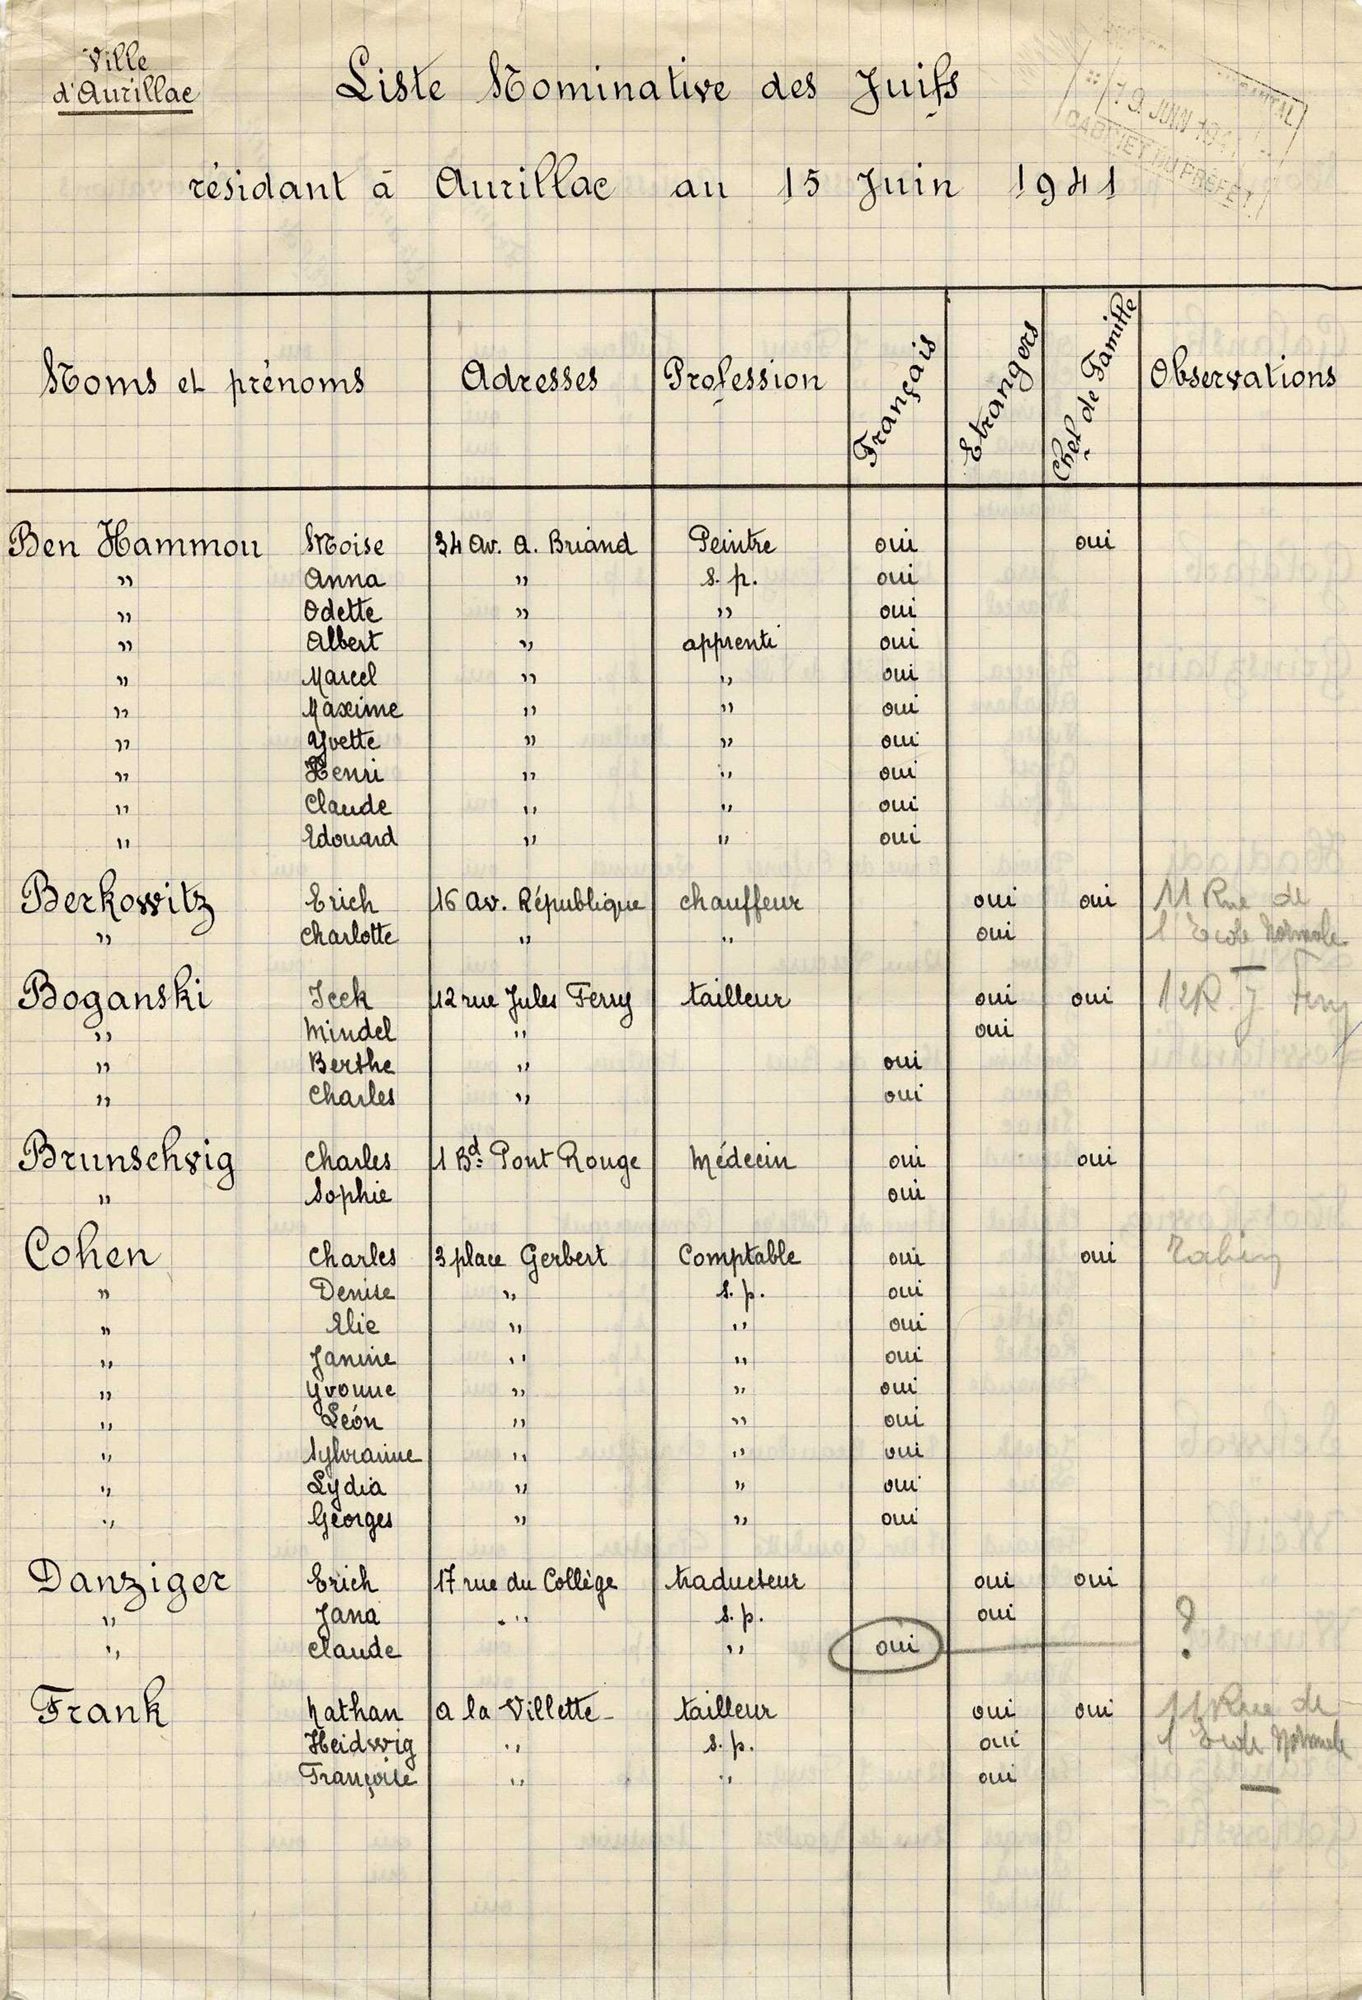 Ville
d'Aurillac
Liste Nominative des Juifs
résidant à Aurillac au 15 Juin 1941
19 JUIN 1941
CABINET DU PRÉFET
Noms et prénoms Adresses Profession Français Etrangers Chef de Famille Observations
Ben Hammou Moise 34 Av. A. Briand Peintre oui oui
" Anna " s. p. oui
" Odette " " oui
" Albert " apprenti oui
" Marcel " " oui
" Maxime " " oui
" Yvette " " oui
" Henri " " oui
" Claude " " oui
" Edouard " " oui
Berkowitz Erich 16 Av. République chauffeur oui oui 11 Rue de
" Charlotte " " oui l'Ecole Normale
Boganski Icek 12 rue Jules Ferry tailleur oui oui 12 R. J Ferry
" Mindel " oui
" Berthe " oui
" Charles " oui
Brunschvig Charles 1 Bd Pont Rouge Médecin oui oui
" Sophie oui
Cohen Charles 3 place Gerbert Comptable oui oui rabin
" Denise " s. p. oui
" Elie " " oui
" Janine " " oui
" Yvonne " " oui
" Léon " " oui
" Sylvianne " " oui
" Lydia " " oui
" Georges " " oui
Danziger Erich 17 rue du Collège traducteur oui oui
" Jana " s. p. oui
" Claude " oui ?
Frank Nathan a la Villette tailleur oui oui 11 Rue de
Heidwig " s. p. oui l'Ecole Normale
Françoise " " oui